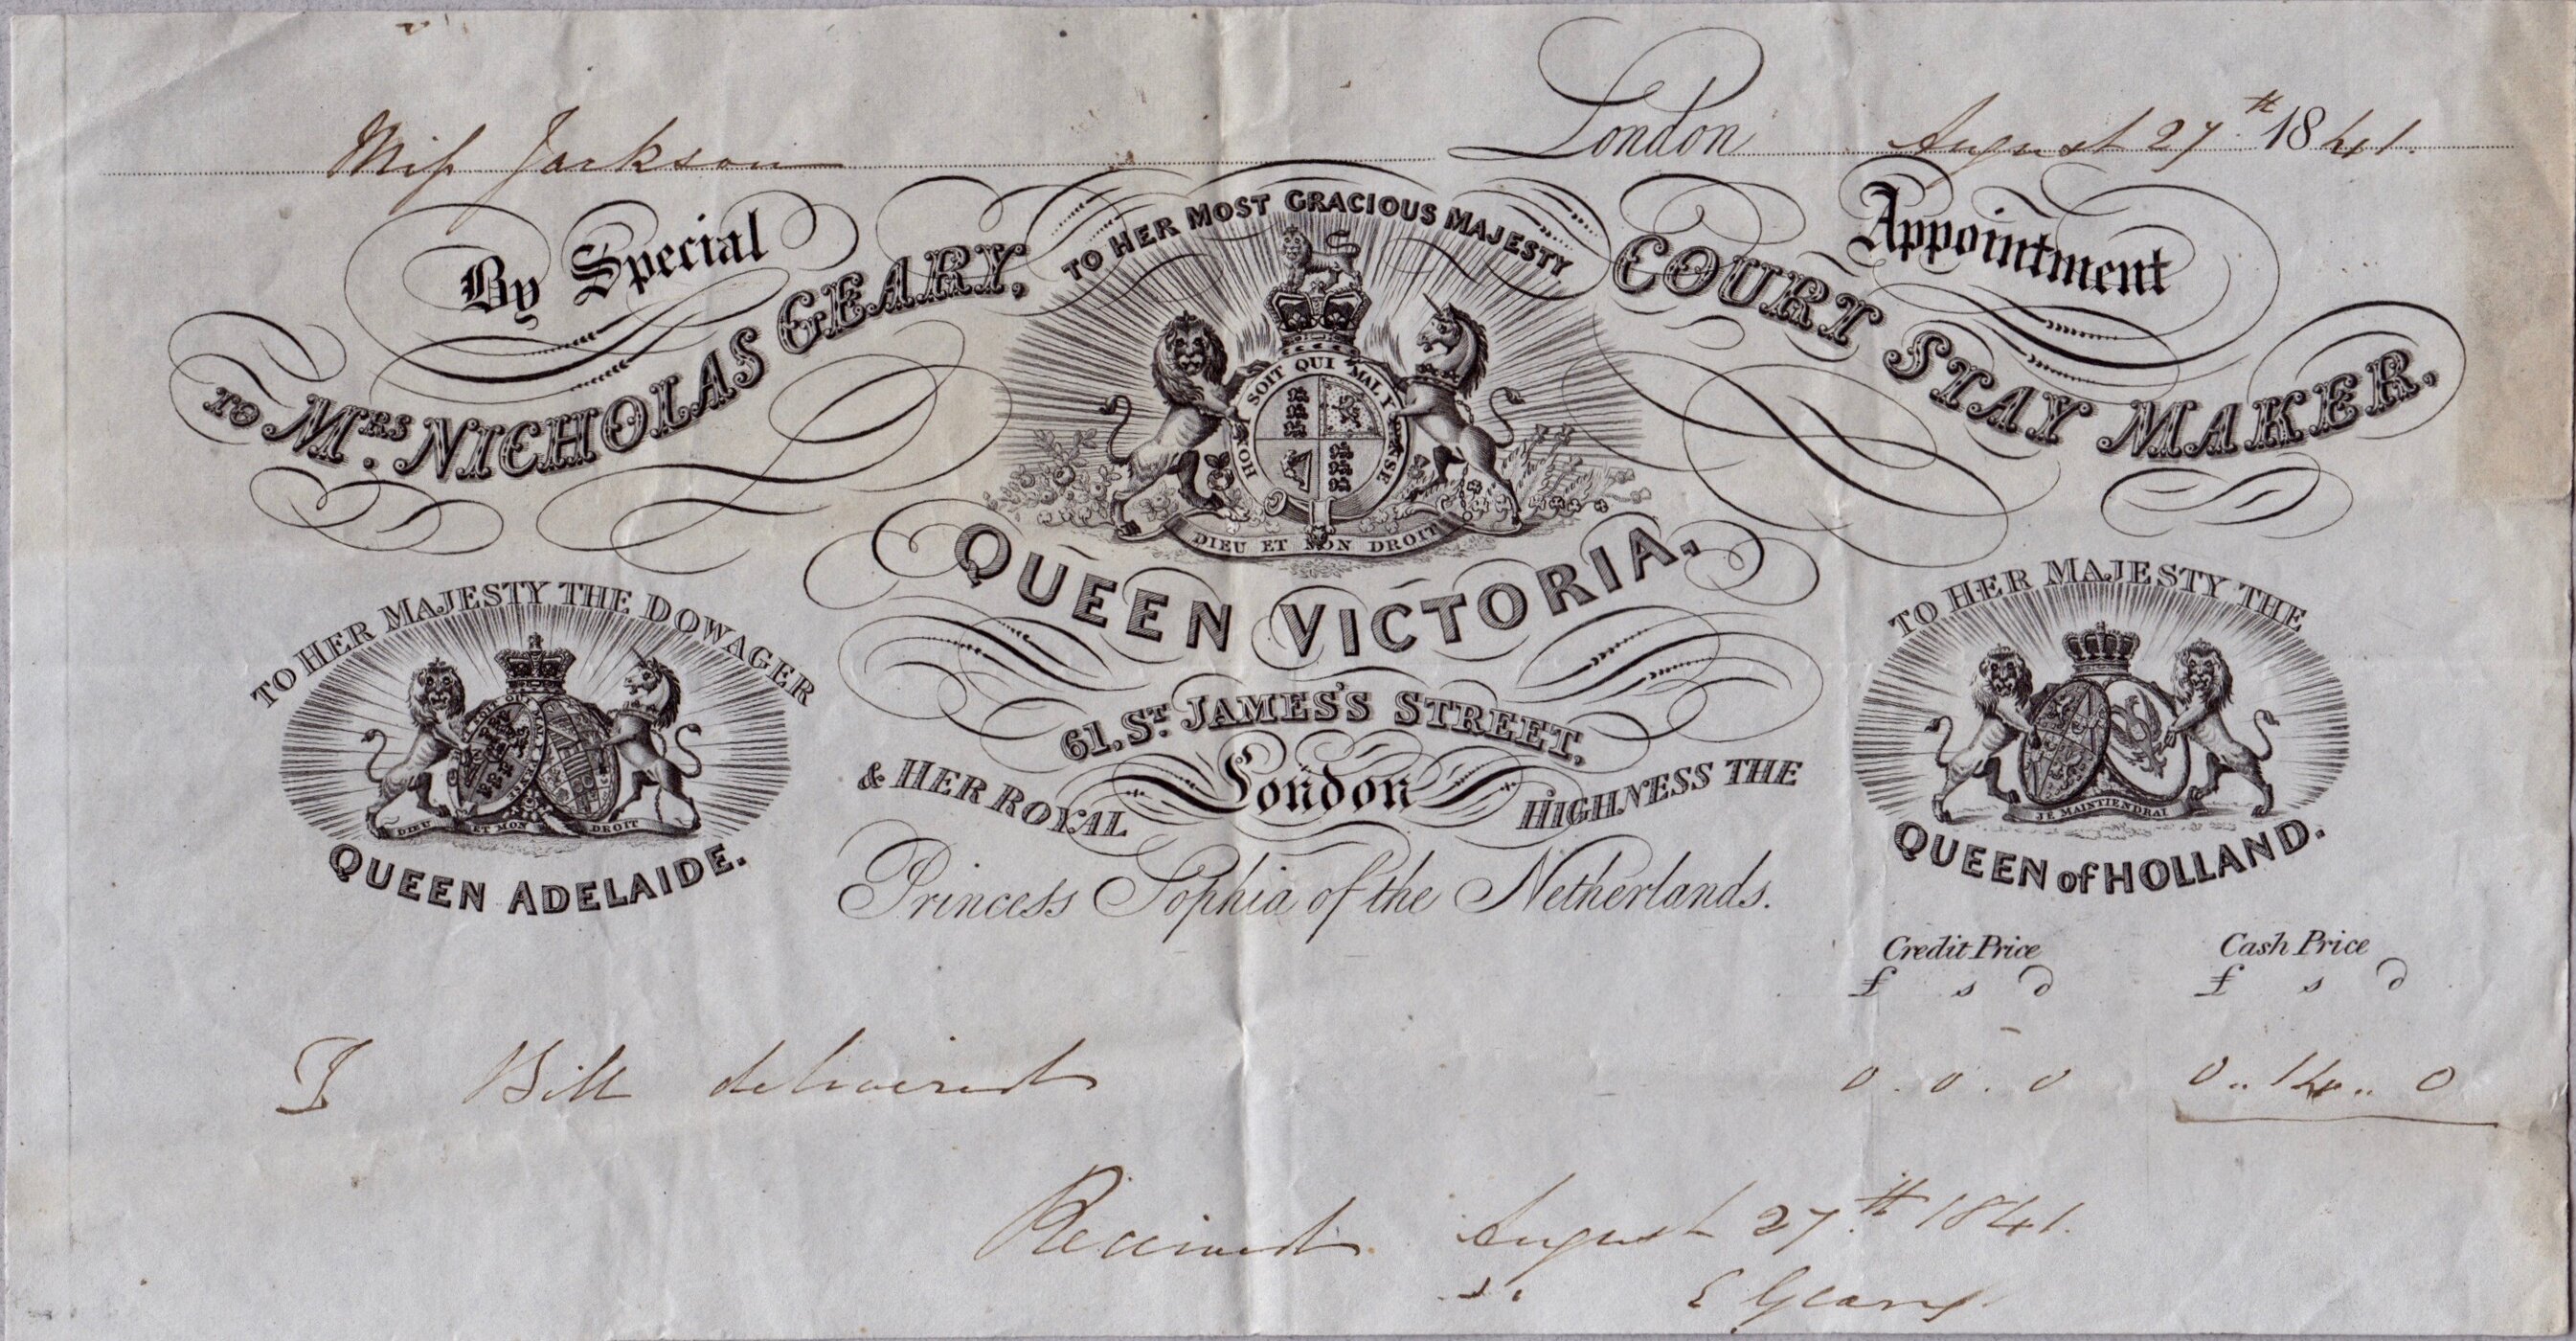 Miss Jackson London August 27th 1841.
By Special Appointment
TO HER MOST GRACIOUS MAJESTY
TO MRS. NICHOLAS GEARY, COURT STAY MAKER,
HONI SOIT QUI MAL Y PENSE
DIEU ET MON DROIT
QUEEN VICTORIA,
61, ST. JAMES'S STREET,
London
& HER ROYAL HIGHNESS THE
Princess Sophia of the Netherlands.
TO HER MAJESTY THE DOWAGER
DIEU ET MON DROIT
QUEEN ADELAIDE.
TO HER MAJESTY THE
JE MAINTIENDRAI
QUEEN of HOLLAND.
Credit Price Cash Price
£ s d £ s d
To Bill delivered 0.0.0 0..14..0
Received August 27th 1841.
E Geary